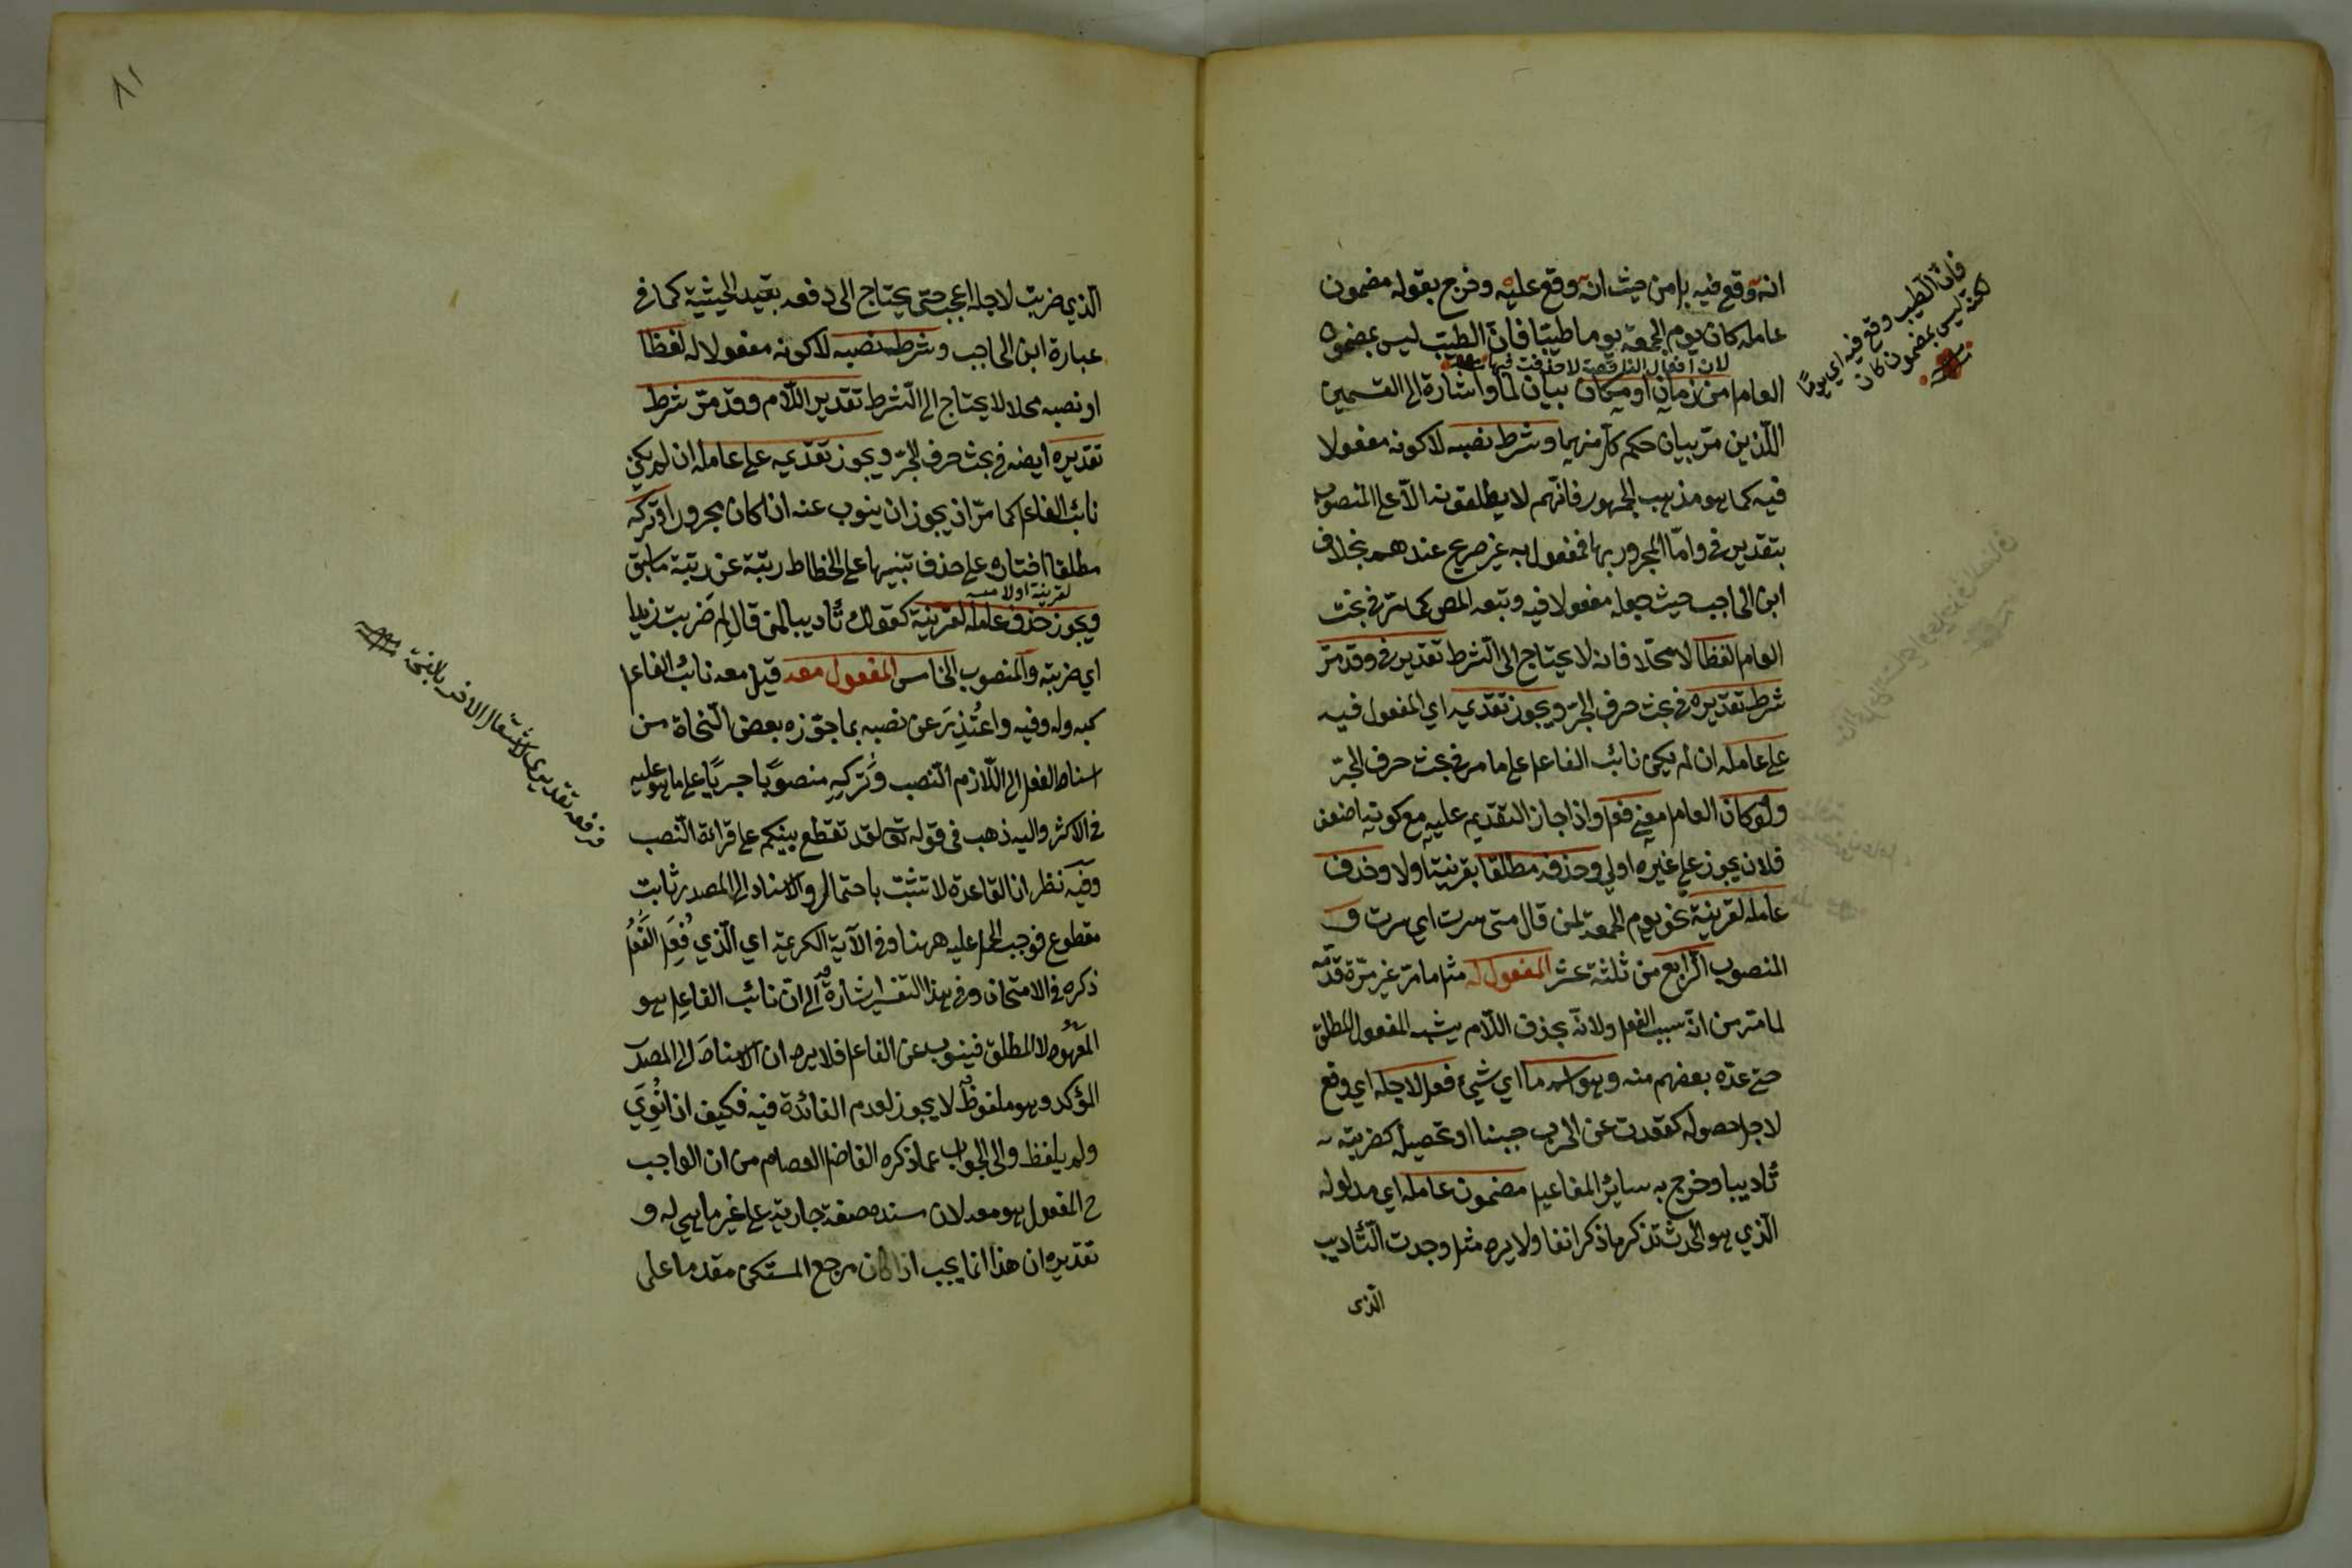 انه وقع فيه بل من حيث انه وقع عليه وخرج بقوله مضمون
عامله كان يوم الجمعة يوما طيبا فان الطيب ليس بمضمون
لان افعال الناقصة لا حدث فيها
العامل من زمان او مكان بيان لما واشارة الى القسمين
اللذين مر بيان حكم كل منهما وشرط نصبه لا كونه مفعولا
فيه كما هو مذهب الجمهور فانهم لا يطلقونه الا على المنصوب
بتقدير في واما المجرور بها فمفعول به غير صريح عندهم بخلاف
ابن الحاجب حيث جعله مفعولا فيه وتبعه المص كما مر في بحث
العامل لفظا لا محلا فانه لا يحتاج الى الشرط تقدير في وقد مر
شرط تقديره في بحث حرف الجر ويجوز تقديمه اي المفعول فيه
على عامله ان لم يكن نائب الفاعل على ما مر في بحث حرف الجر
ولو كان العامل معنى فعل واذا جاز التقديم عليه مع كونه اضعف
فلان يجوز على غيره اولى وحذفه مطلقا بقرينة اولا وحذف
عامله لقرينة نحو يوم الجمعة لمن قال متى سرت اي سرت و
المنصوب الرابع من ثلثة عشر المفعول له مثل ما مر غير مرة قدمه
لما مر من انه سبب الفعل ولانه بحذف اللام يشبه المفعول المطلق
حتى عده بعضهم منه وهو اسم ما اي شيئ فعل لاجله اي وقع
لاجل حصوله كقعدت عن الحرب جبنا او تحصيله كضربته
تأديبا وخرج به سائر المفاعيل مضمون عامله اي مدلوله
الذي هو الحدث تذكر ما ذكر انفا ولا يرد مثل وجدت التأديب
الذي
فان الطيب وقع فيه اي يوما
لكنه ليس بمضمون كان
٨١
الذي ضربت لاجله اعجب حتى يحتاج الى دفعه بقيد الحيثية كما في
عبارة ابن الحاجب وشرط نصبه لا كونه مفعولا له لفظا
او نصبه محلا لا يحتاج الى الشرط تقدير اللام وقد مر شرط
تقديره ايضا في بحث حرف الجر ويجوز تقديمه على عامله ان لم يكن
نائب الفاعل كما مر انه يجوز ان ينوب عنه اذا كان مجرورا وتركه
مطلقا اختاره على حذف تنبيها على انحطاط رتبة عن رتبة ما سبق
لقرينة اولا منه
ويجوز حذف عامله لقرينة كقولك تأديبا لمن قال لم ضربت زيدا
اي ضربته والمنصوب الخامس المفعول معه قيل معه نائب الفاعل
كبه وله وفيه واعتذر عن نصبه بما جوزه بعض النحاة من
اسناد الفعل الى اللازم النصب وتركه منصوبا جريا على ما هو عليه
في الاكثر واليه ذهب في قوله تعالى لقد تقطع بينكم على قرائة النصب
وفيه نظر اذ القاعدة لا تثبت باحتمال والاسناد الى المصدر ثابت
مقطوع فوجب الحمل عليه ههنا وفي الآية الكريمة اي الذي فعل الفعل
ذكره في الامتحان وفي هذا التفسير اشارة الى ان نائب الفاعل هو
المعهود لا المطلق فينوب عن الفاعل فلا يرد ان الاسناد الى المصدر
المؤكد وهو ملفوظ لا يجوز لعدم الفائدة فيه فكيف اذا نوي
ولم يلفظ والى الجواب عما ذكره الفاضل العصام من ان الواجب
ح المفعول هو معه لان سنده صفة جارية على غير ما هي له و
تقديره ان هذا انما يجب اذا كان مرجع المستكن مقدما على